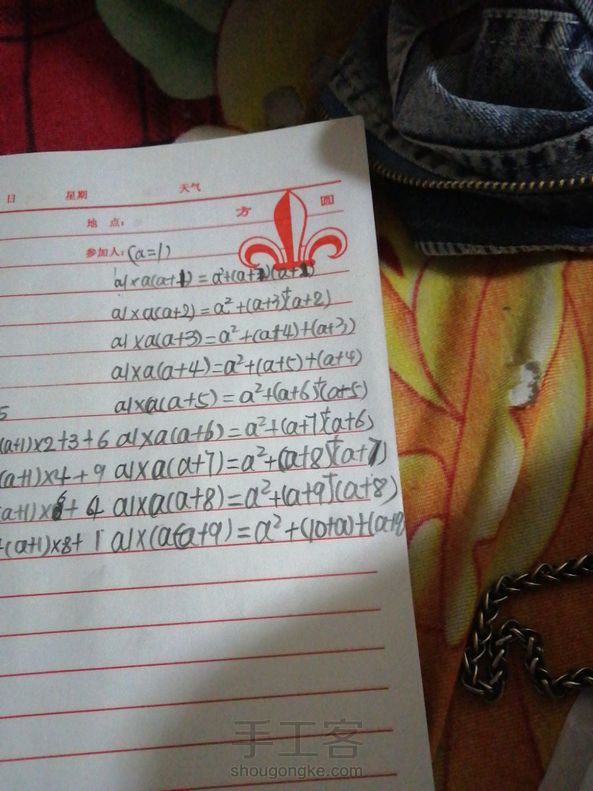 日 星期 天气
地 点: 方 圆
参加人: (a=1)
a1×a(a+1)=a²+(a+2)(a+1)
a1×a(a+2)=a²+(a+3)+(a+2)
a1×a(a+3)=a²+(a+4)+(a+3)
a1×a(a+4)=a²+(a+5)+(a+4)
5 a1×a(a+5)=a²+(a+6)+(a+5)
(a+1)×2+3+6 a1×a(a+6)=a²+(a+7)+(a+6)
(a+1)×4+9 a1×a(a+7)=a²+(a+8)+(a+7)
(a+1)×6+4 a1×a(a+8)=a²+(a+9)+(a+8)
+(a+1)×8+1 a1×(a(a+9)=a²+(10+a)+(a+9)
手工客
shougongke.com